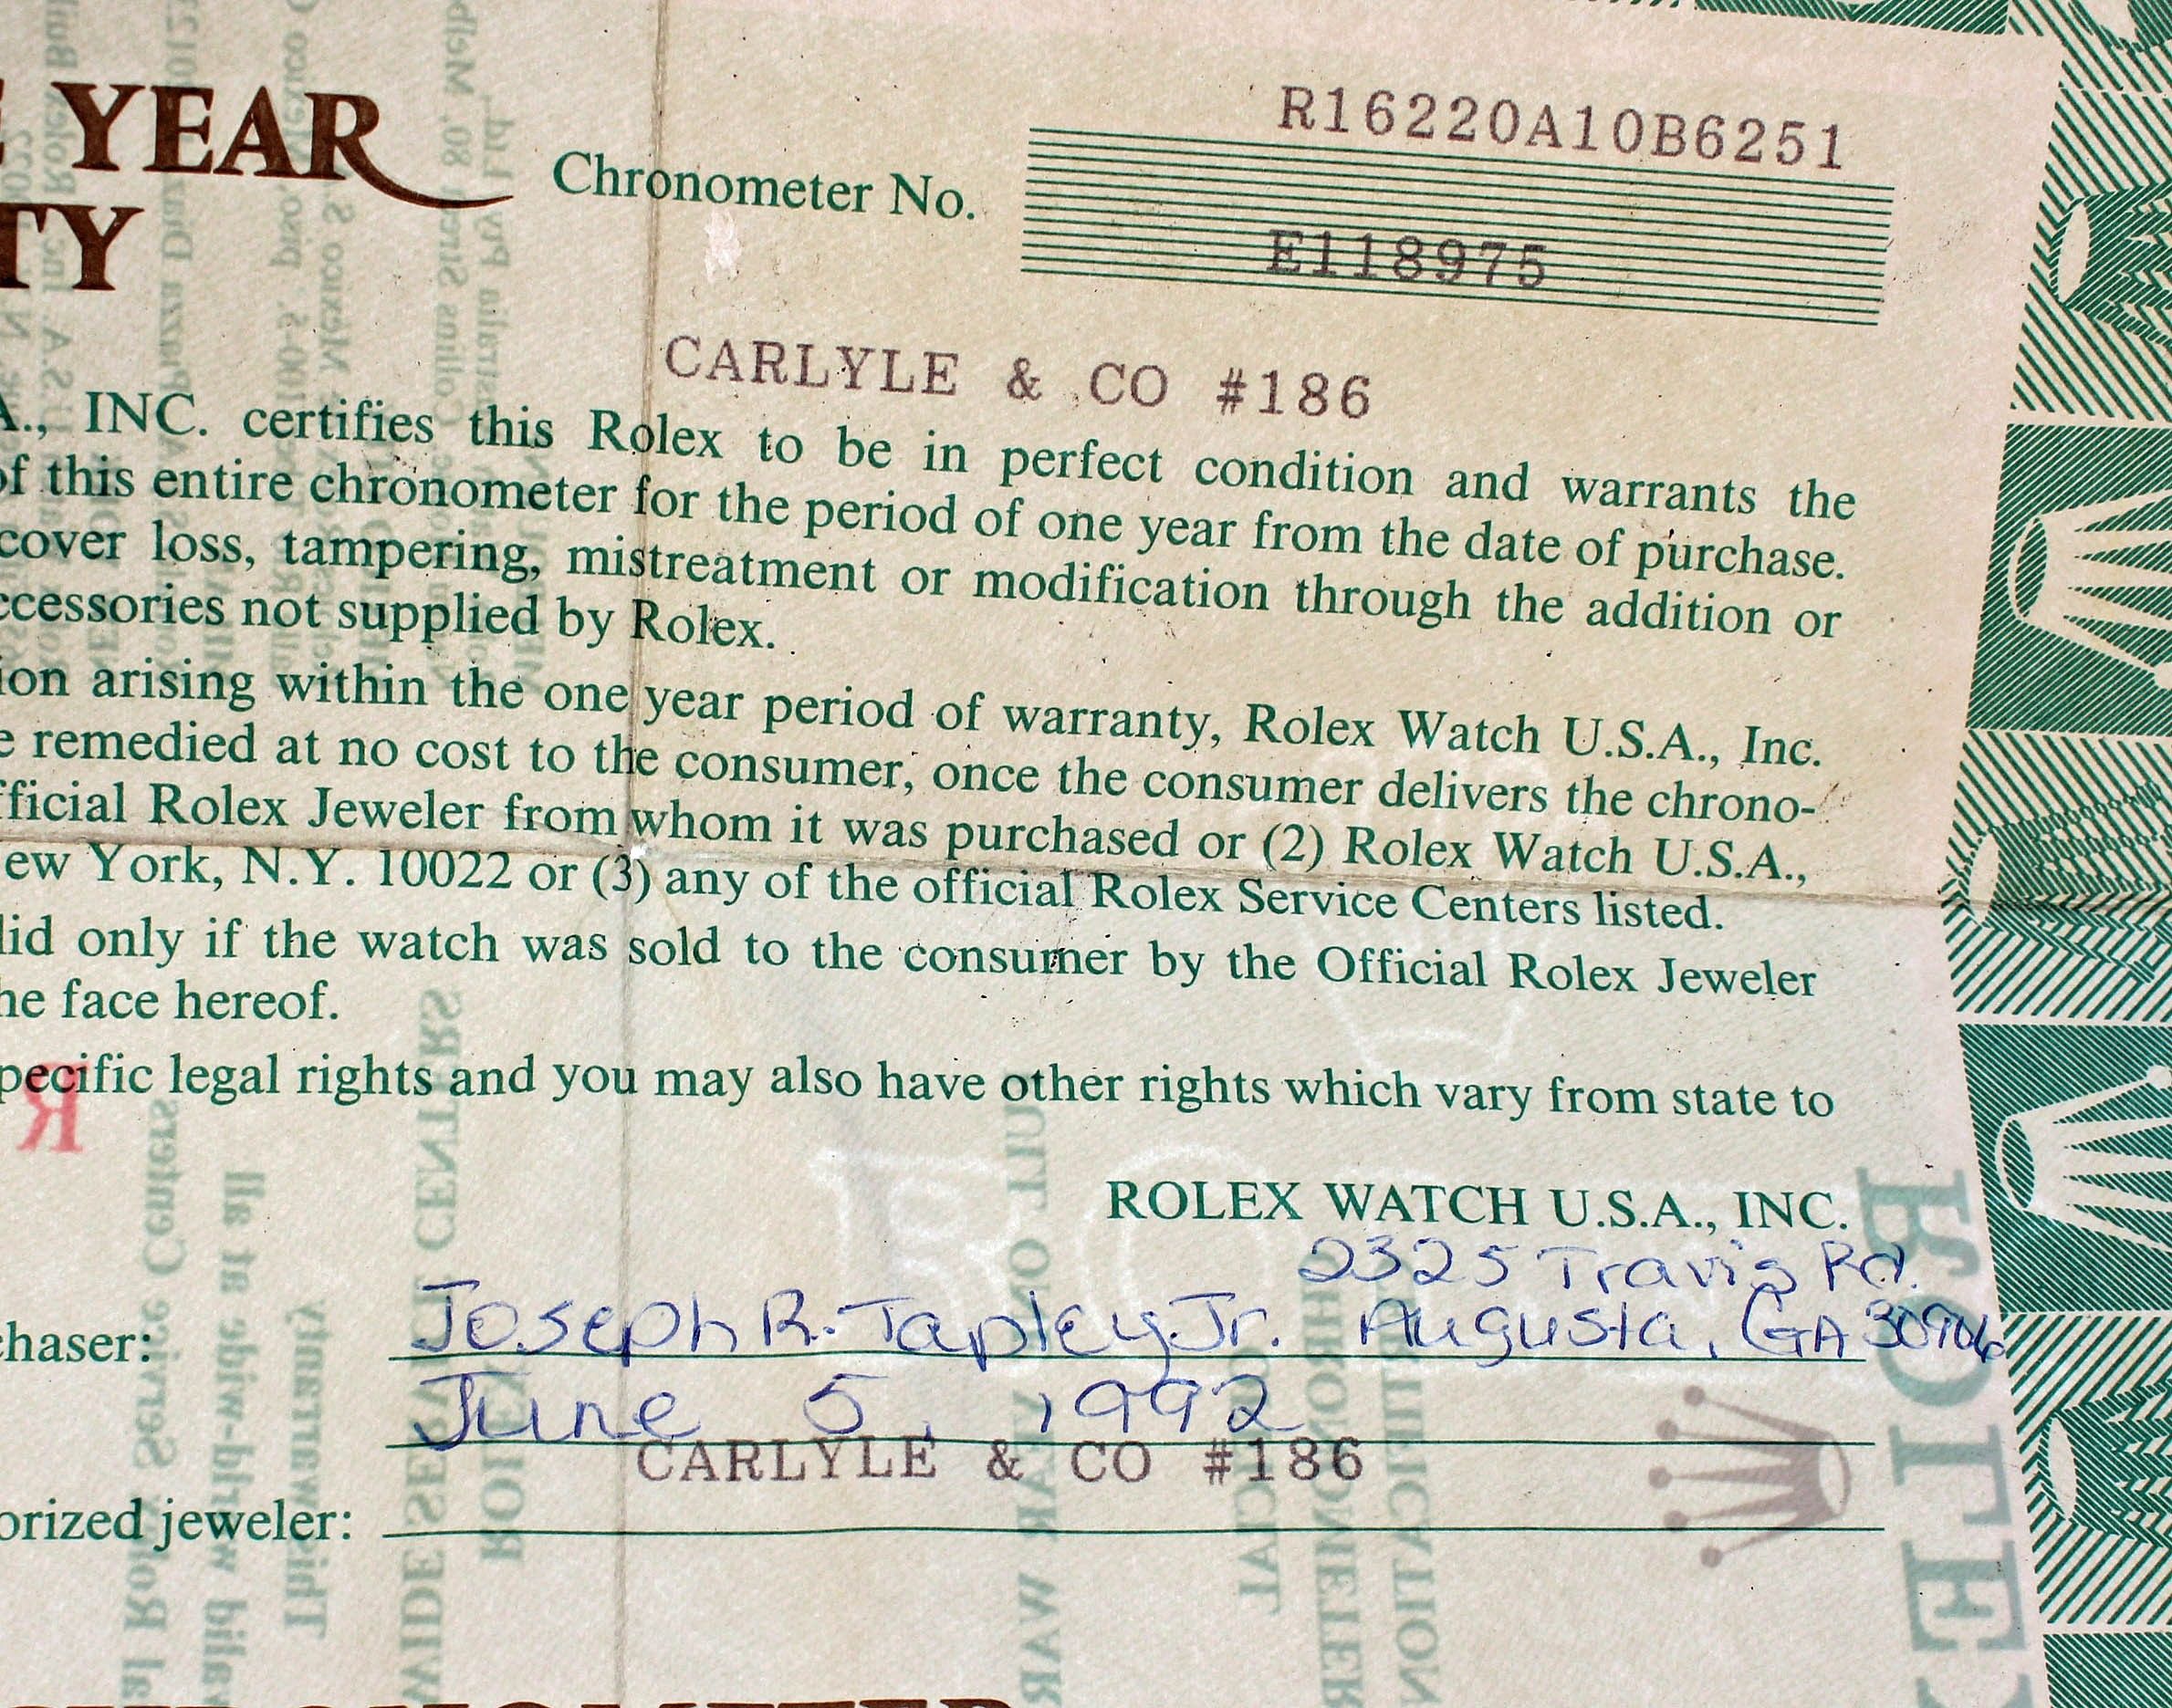 YEAR
TY
R16220A10B6251
Chronometer No.
E118975
CARLYLE & CO #186
A., INC. certifies this Rolex to be in perfect condition and warrants the
of this entire chronometer for the period of one year from the date of purchase.
cover loss, tampering, mistreatment or modification through the addition or
ccessories not supplied by Rolex.
ion arising within the one year period of warranty, Rolex Watch U.S.A., Inc.
e remedied at no cost to the consumer, once the consumer delivers the chrono-
fficial Rolex Jeweler from whom it was purchased or (2) Rolex Watch U.S.A.,
ew York, N.Y. 10022 or (3) any of the official Rolex Service Centers listed.
lid only if the watch was sold to the consumer by the Official Rolex Jeweler
he face hereof.
pecific legal rights and you may also have other rights which vary from state to
ROLEX WATCH U.S.A., INC.
2325 Travis Rd.
chaser: Joseph R. Tapley Jr. Augusta, GA 30906
June 5, 1992
CARLYLE & CO #186
orized jeweler: